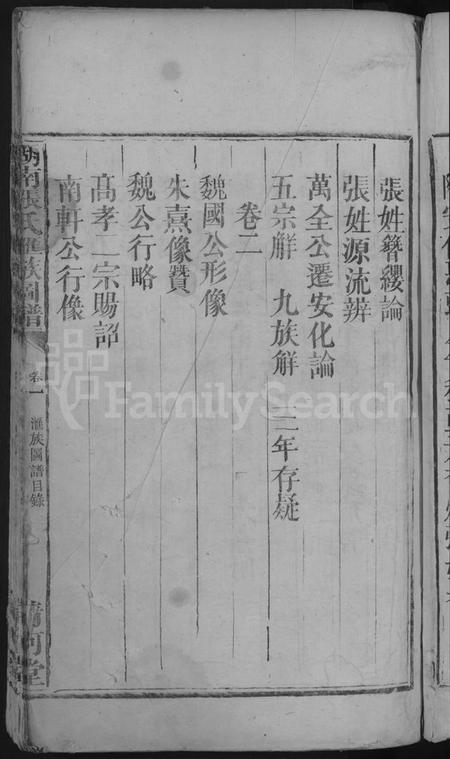 張姓簪纓論
張姓源流辨
萬全公遷安化論
五宗解 九族解 三年存疑
卷二
魏國公形像
朱熹像贊
魏公行略
高孝二宗賜詔
南軒公行像
湖南張氏匯族圖譜
卷一
滙族圖譜目錄
清河堂
FamilySearch